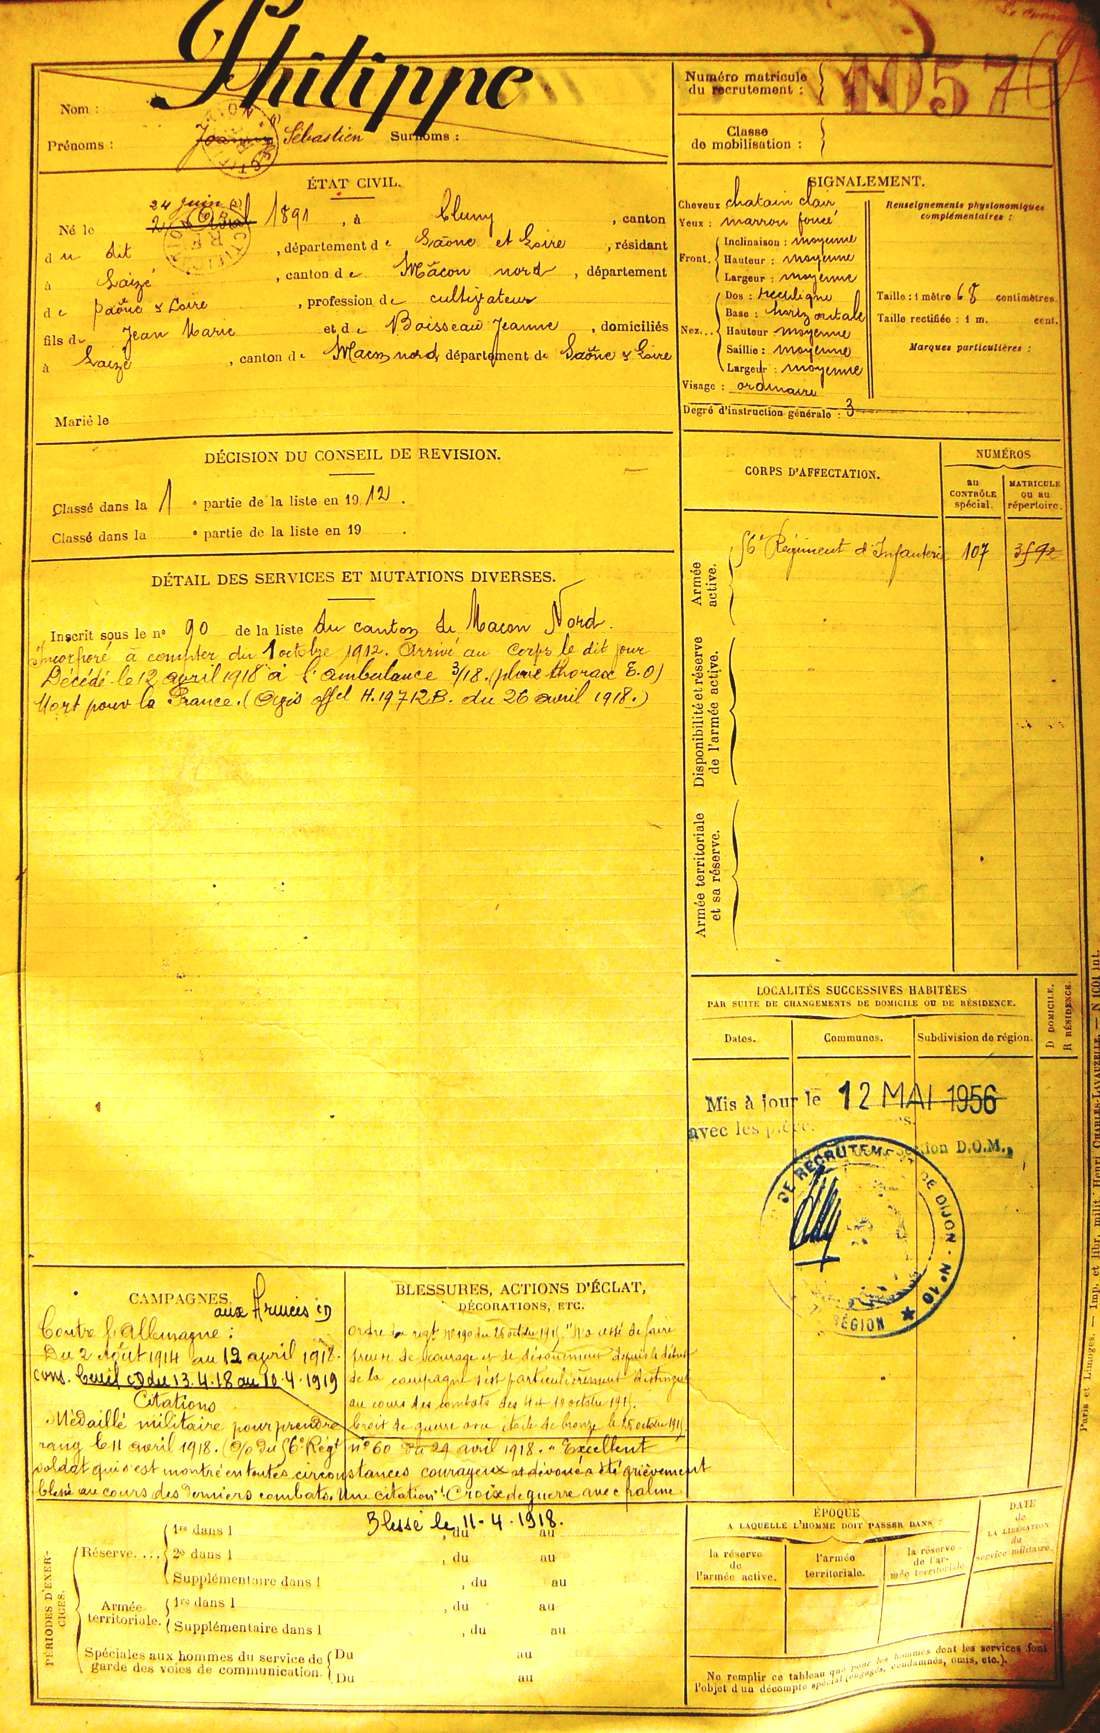 Philippe
Nom :
Prénoms : Joanny Sébastien Surnoms :
Numéro matricule
du recrutement : 1057
Classe
de mobilisation :
ÉTAT CIVIL.
24 juin
Né le 1891, à Cluny, canton
du dit, département de Saône et Loire, résidant
à Laizé, canton de Mâcon nord, département
de Saône & Loire, profession de cultivateur
fils de Jean Marie et de Boisseau Jeanne, domiciliés
à Laizé, canton de Macon nord département de Saône & Loire
Marié le
SIGNALEMENT.
Cheveux chatain clair
Yeux : marron foncé
Front. Inclinaison : moyenne
Hauteur : moyenne
Largeur : moyenne
Nez... Dos : rectiligne
Base : horizontale
Hauteur moyenne
Saillie : moyenne
Largeur : moyenne
Visage : ordinaire
Degré d'instruction générale : 3
Renseignements physionomiques
complémentaires :
Taille : 1 mètre 68 centimètres.
Taille rectifiée : 1 m. cent.
Marques particulières :
DÉCISION DU CONSEIL DE REVISION.
Classé dans la 1 e partie de la liste en 1912.
Classé dans la e partie de la liste en 19 .
DÉTAIL DES SERVICES ET MUTATIONS DIVERSES.
Inscrit sous le n° 90 de la liste du canton de Macon Nord.
Incorporé à compter du 1 octobre 1912. Arrivé au corps le dit jour
Décédé le 12 avril 1918 à l'ambulance 3/18. (plaie thorax E.O)
Mort pour la France. (Avis offel H.19712B. du 26 avril 1918.)
CORPS D'AFFECTATION.
NUMÉROS
au
CONTRÔLE
spécial.
MATRICULE
ou au
répertoire.
Armée
active.
56e Régiment d'Infanterie 107
Disponibilité et réserve
de l'armée active.
Armée territoriale
et sa réserve.
LOCALITÉS SUCCESSIVES HABITÉES
PAR SUITE DE CHANGEMENTS DE DOMICILE OU DE RÉSIDENCE.
Dates. Communes. Subdivision de région.
D DOMICILE.
R RÉSIDENCE.
Mis à jour le 12 MAI 1956
avec les
D.O.M.
DE RECRUTEMENT DE DIJON - N° 10
RÉGION
CAMPAGNES.
aux Armées CD
Contre l'Allemagne :
Du 2 Août 1914 au 12 avril 1918.
CD du 13.4.18 au 10.4.1919
Citations
Médaillé militaire pour prendre
rang le 11 avril 1918.
BLESSURES, ACTIONS D'ÉCLAT,
DÉCORATIONS, ETC.
Ordre du regt n°190 du "N'a cessé de faire
preuve de courage et de dévouement depuis le début
de la campagne s'est particulièrement distingué
au cours des combats des
Croix de guerre avec étoile de bronze
(O/o du 56e Régt n° 60 du 24 avril 1918. "Excellent
soldat qui s'est montré en toutes circonstances courageux et dévoué a été grièvement
blessé au cours des derniers combats. Une citation" Croix de guerre avec palme
Blessé le 11-4-1918.
PÉRIODES D'EXERCICES.
Réserve.... 1re dans l , du au
2e dans l , du au
Supplémentaire dans l , du au
Armée
territoriale. 1re dans l , du au
Supplémentaire dans l , du au
Spéciales aux hommes du service de
garde des voies de communication. Du au
Du au
ÉPOQUE
A LAQUELLE L'HOMME DOIT PASSER DANS :
la réserve
de
l'armée active.
l'armée
territoriale.
la réserve
de l'ar-
mée territoriale.
DATE
de
LA LIBÉRATION
du
service militaire.
Ne remplir ce tableau que pour les hommes dont les services font
l'objet d'un décompte spécial (engagés, condamnés, omis, etc.).
Paris et Limoges. — Imp. et libr. milit. Henri CHARLES-LAVAUZELLE. — N 1601 int.